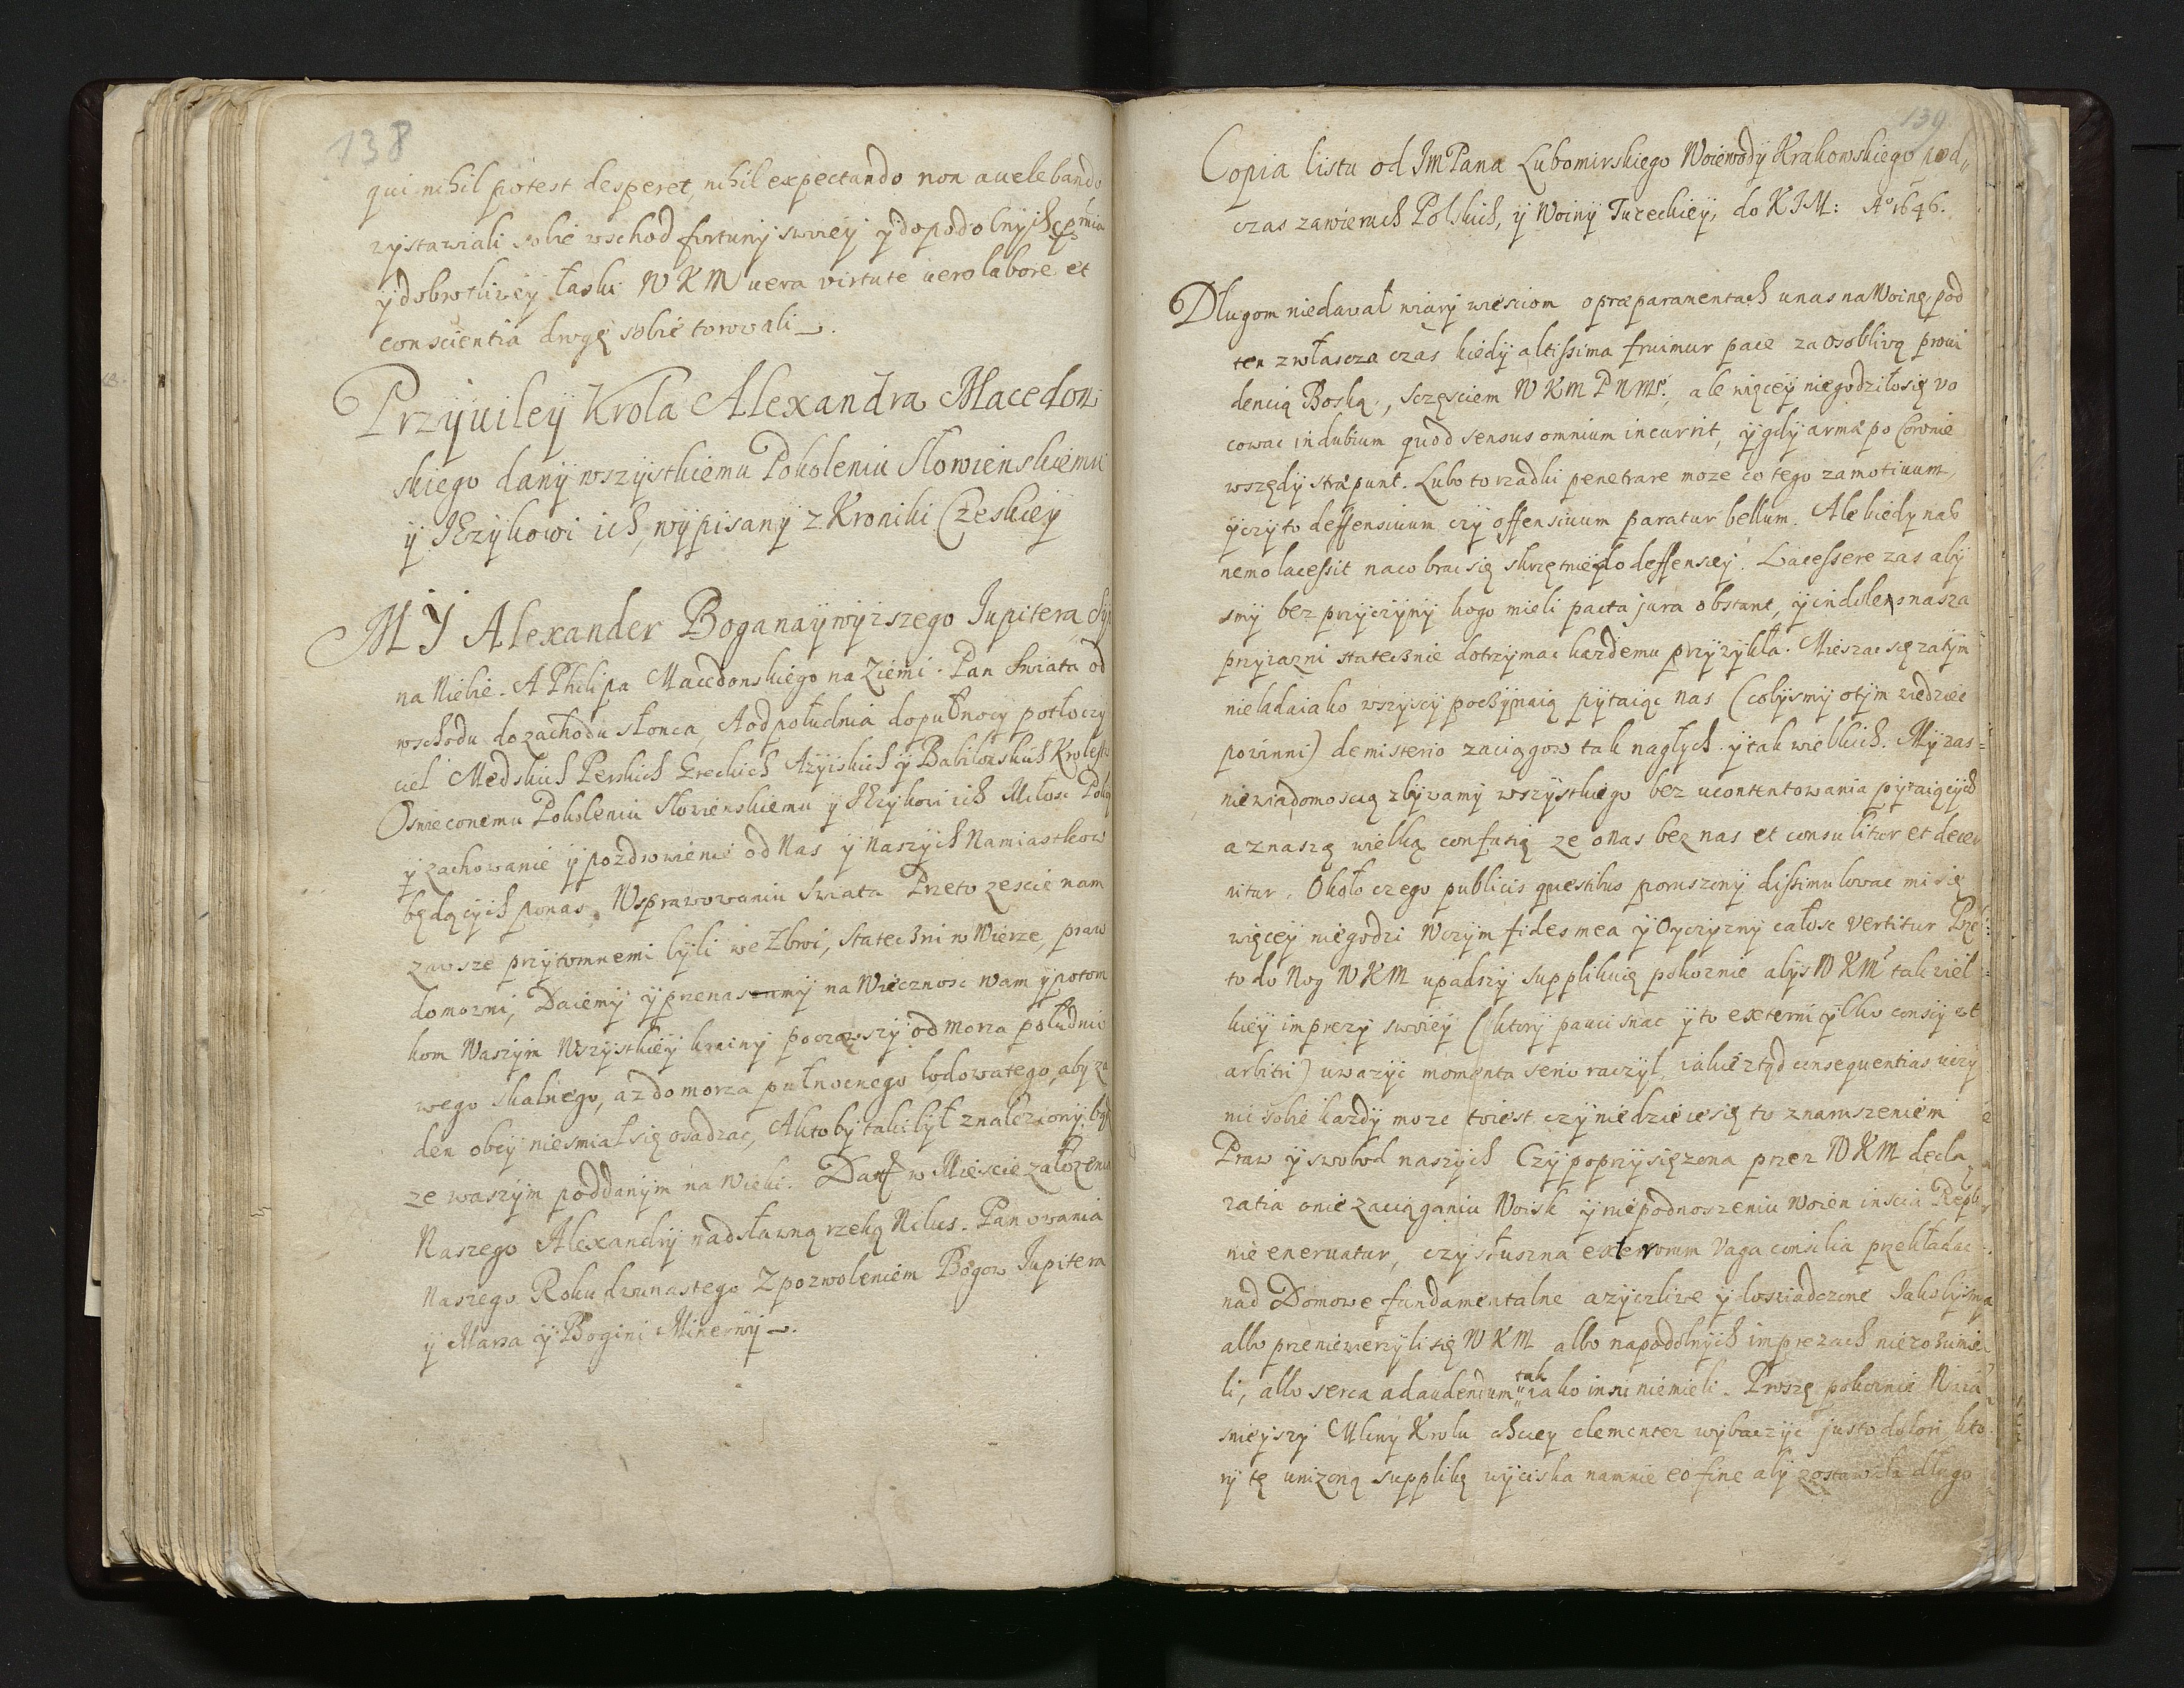 138
qui nihil potest desperet, nihil expectando non auelebando
wystawiali sobie wschod fortuny swoiey y do podobnych
y dobrotliwey łaski W K M vera virtute vero labore et
conscientia drogę sobie torowali.
Przyuiley Krola Alexandra Macedon
skiego dany wszystkiemu Pokoleniu Słowienskiemu
y IEzykowi ich, wypisany z Kroniki Czeskiey
MY Alexander Boga naywyzszego Iupitera Sy
na Niebie. A Philipa Macedonskiego na Ziemi. Pan Swiata od
wschodu do zachodu słonca, A od południa do pułnocy potłoczy
ciel Medskich Perskich Greckich Azyiskich y Babilonskich Krolestw
Oswieconemu Pokoleniu Słowienskiemu y IEzykowi ich Miłosc Pokoy
y zachowanie y pozdrowienie od Nas y Naszych Namiastkow
będących po nas, W sprawowaniu Swiata Przeto zescie nam
zawsze przytomnemi byli we Zbroi, Statecżni w Wierze, praw
domozni, Daiemy y przenaszamy na Wiecznosc Wam y potom
kom Waszym Wszystkiey krainy począwszy od Morza południo
wego skalnego, az do morza pułnocnego lodowatego, aby za
den obcy niesmiał się osadzac, A kto by taki był znaleziony, bę
ze waszym poddanym na Wieki. Dan w Miescie załozenia
Naszego Alexandry nad sławną rzeką Nilus. Panowania
Naszego Roku dwunastego Z pozwoleniem Bogow Iupitera
y Marsa y Bogini Minerwy.
139
Copia listu od ImPana Lubomirskiego Woiewody Krakowskiego pod,,
czas zawieruch Polskich, y Woiny Tureckiey, do K I M: Aº 1646.
Długom niedawał wiary wiesciom o præparamentach u nas na Woinę, pod
ten zwłascza czas kiedy altissima fruimur pace za osobliwą proui
dencią Boską, sczęsciem W K M P N Mº, ale więcey niegodziłosię vo
cowac in dubium quod sensus omnium incurrit, y gdy arma po Coronie
wszędy stræpunt. Lubo to rzadki penetrare moze co tego za motiuum,
y czy to deffensiuum czy offensiuum paratur bellum. Ale kiedy nas
nemo lacessit na co brac się skrzętniey do deffensiey. Lacessere zas aby
smy bez przyczyny kogo mieli pacta jura obstant, y indoles nasza
przyiazni statecżnie dotrzymac kazdemu przywykła. Mieszac się zatym
nieladaiako wszyscy pocżynaią pytaiąc nas (cobysmy o tym wiedziec
powinni) de misterio zaciągow tak nagłych y tak wielkich. My zas
niewiadomoscią zbywamy wszystkiego bez ucontentowania pytaiących
a z naszą wielką confusią ze o nas bez nas et consulitur et decer
nitur. Około czego publicis questibus poruszony dissimulowac mi się
więcey niegodzi W czym fides mea y Oyczyzny całosc vertitur Prze
to do Nog W K M upadszy supplikuię pokornie abys W K M tak wiel
kiey imprezy swoiey (ktory pauci snac y to externi tylko conscij et
arbitri) uwazyc momenta serio raczył, iakie ztąd consequentias uczy
nic sobie kazdy moze to iest czy niedzieie się to z naruszeniem
Praw y swobod naszych Czy poprzysięzona przez W K M decla
ratia o nie zaciąganiu Woisk y niepodnoszeniu Woien inscia Reipb
nie eneruatur, czy słuszna externorum vaga consilia przekładac
nad Domowe fundamentalne a zyczliwe y doswiadczone Iakobysmy
albo przeniewierzyli się W K M albo na podobnych imprezach nierozumie
li, albo serca ad audendum tak iako insi niemieli. Proszę pokornie Naia
snieyszy Mlciwy Krolu chciey clementer wybaczyc justo dolori, kto
ry tę unizoną supplikę wyciska na mnie eo fine aby zostawała długo